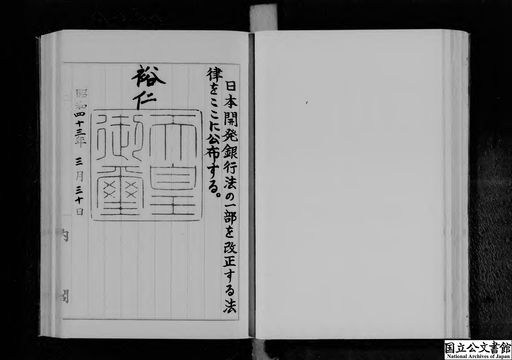 日本開発銀行法の一部を改正する法
律をここに公布する。
裕仁
天皇
御璽
昭和四十三年 三月三十日
内閣
国立公文書館
National Archives of Japan